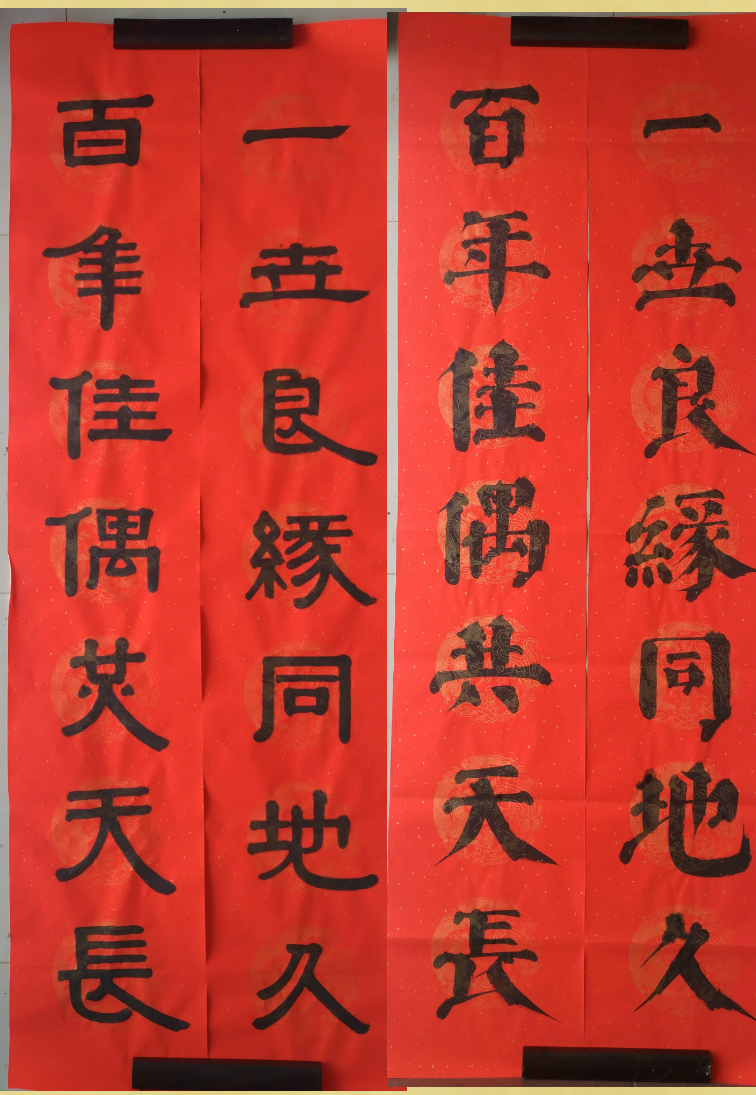 一世良緣同地久
百年佳偶炗天長
一世良緣同地久
百年佳偶共天長